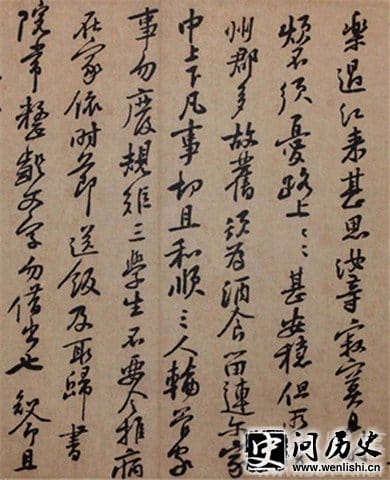 樂過江来甚思汝等寂寞且
煩不須憂路上〻甚安穩但所
州郡多故舊須為酒食留連尓家
中上下凡事切且和順三人輪管家
事勿廢規矩三學生不要令推病
在家依時節送飯及取歸書
院常整齪文字勿借出也知命且
问历史
www.wenlishi.cn